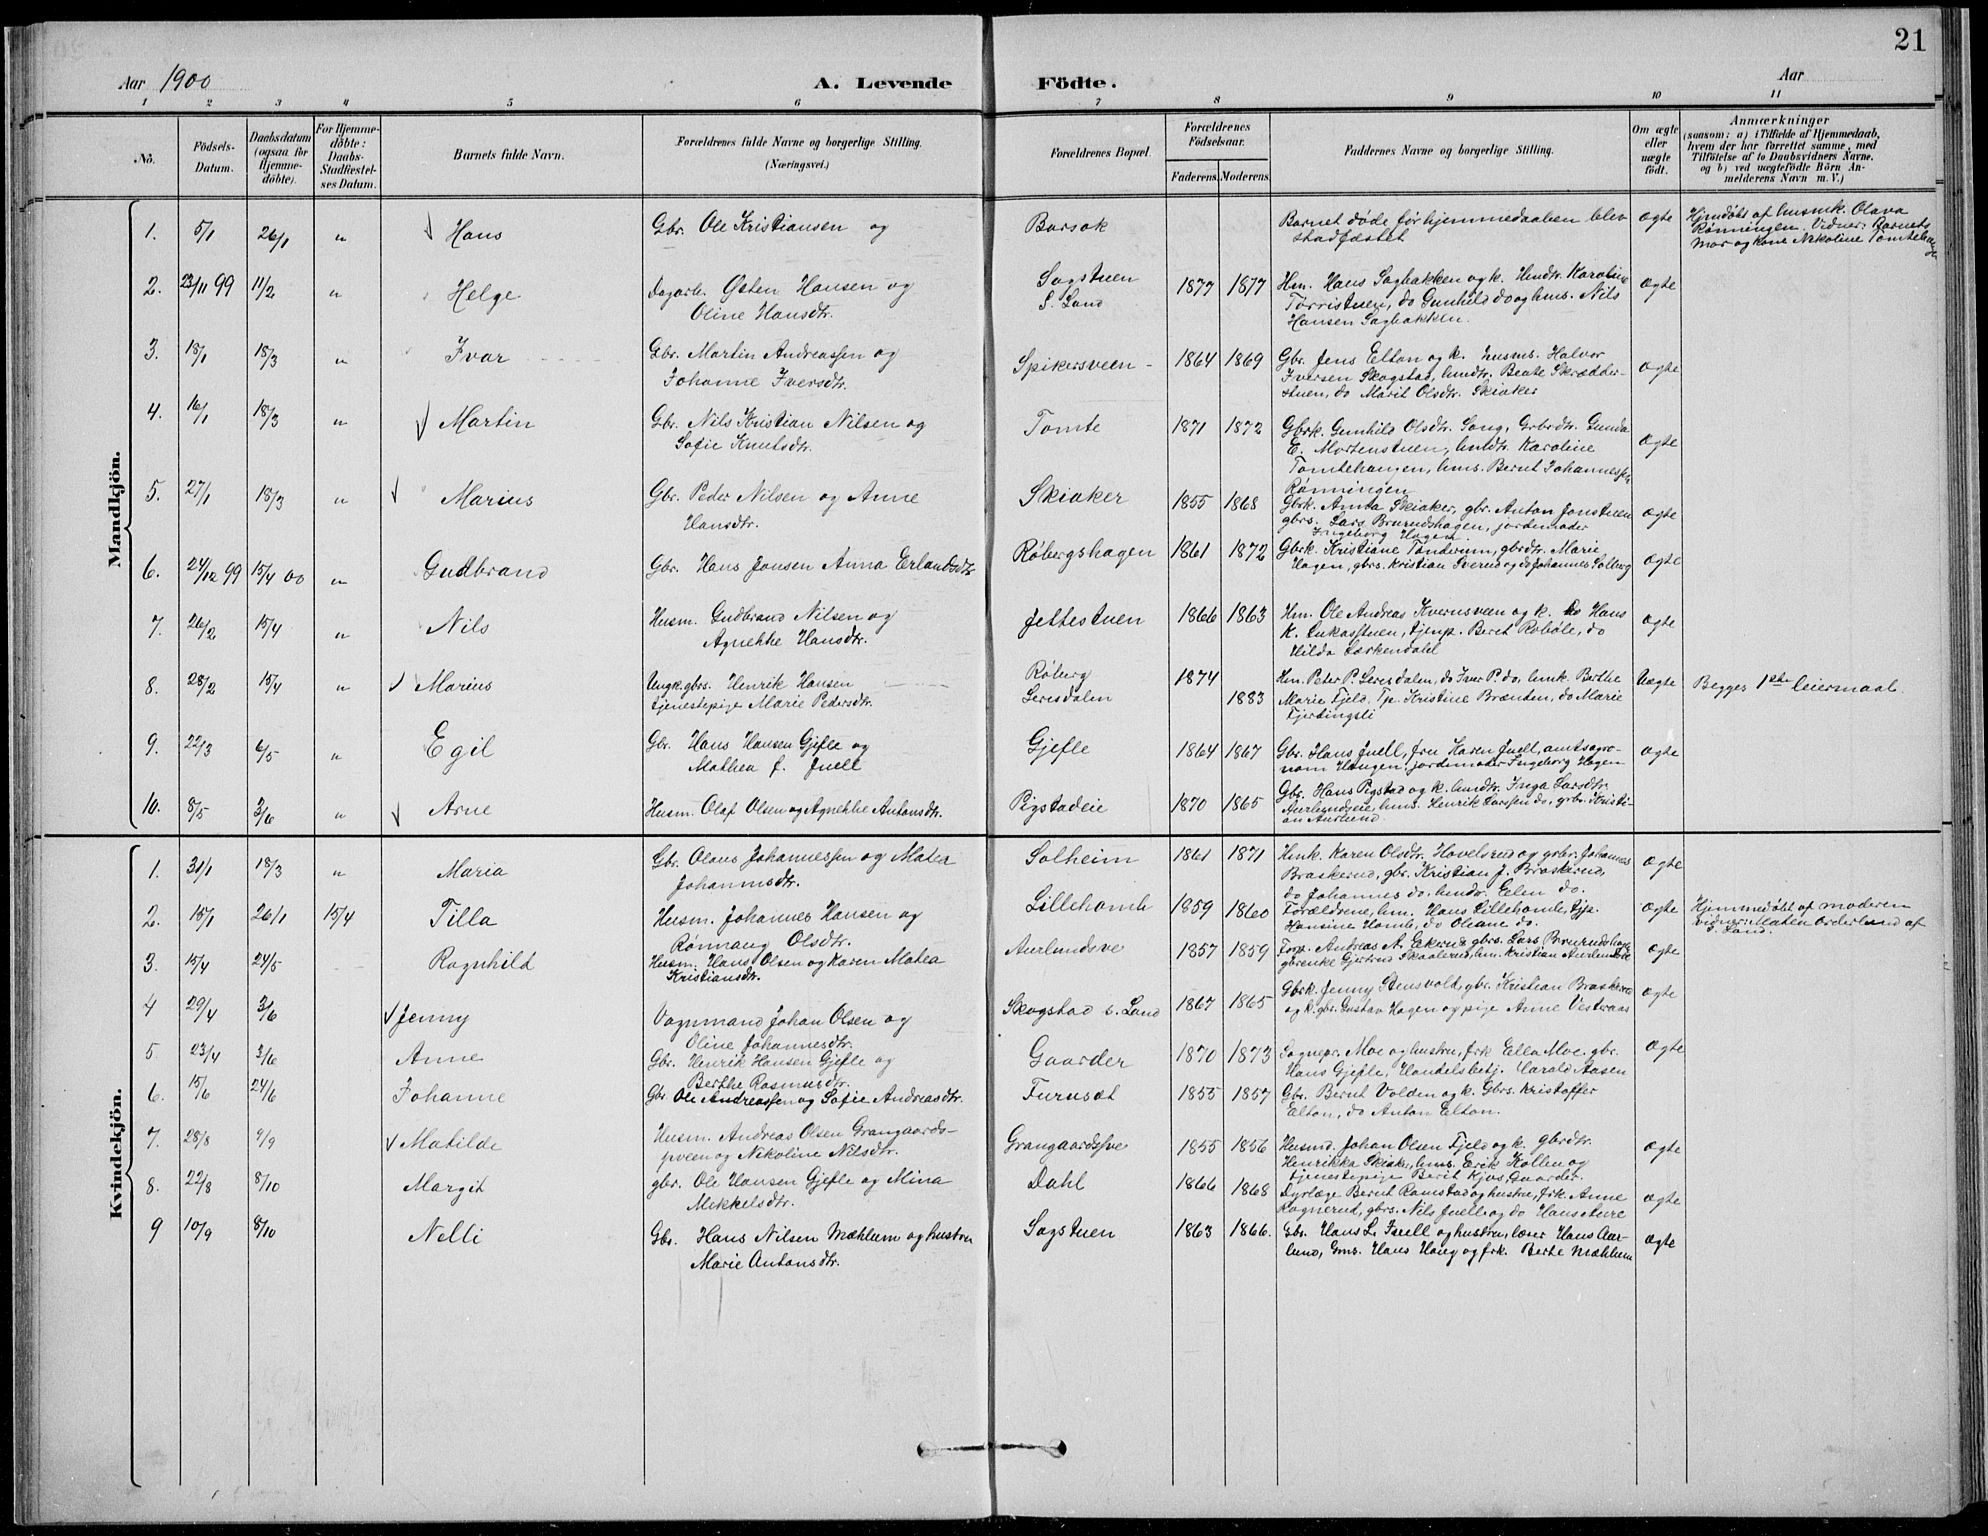 21
Aar 1900 A. Levende Födte. Aar
1 2 3 4 5 6 7 8 9 10 11
No.
Födsels-Datum.
Daabsdatum (ogsaa for Hjemme-döbte).
For Hjemme-döbte: Daabs-Stadfæstel-ses Datum.
Barnets fulde Navn.
Forældrenes fulde Navne og borgerlige Stilling. (Næringsvei.)
Forældrenes Bopæl.
Forældrenes Födselsaar.
Faderens. Moderens.
Faddernes Navne og borgerlige Stilling.
Om ægte eller uægte födt.
Anmærkninger
(saasom: a) i Tilfælde af Hjemmedaab,
hvem der har forrettet samme, med
Tilföielse af to Daabsvidners Navne,
og b) ved uægtefödte Börn An-
melderens Navn m. V.)
Mandkjön.
1. 5/1 26/1 " Hans Gbr. Ole Kristiansen og Barsok Barnet døde før hjemmedaaben blev ægte Hjmdøbt af husmk. Olava
stadfæstet Rønningen. Vidner: Barnets
Mor og kone Nikoline Tomtehaugen
2. 23/11 99 11/2 " Helge Dagarb. Østen Hansen og Sagstuen 1877 1877 Hm. Hans Sagbakken og k. Hmdtr. Karoline ægte
Oline Hansdtr. S. Land Torristuen, do Gunhild do og hms. Nils
Hansen Sagbakken.
3. 18/1 18/3 " Ivar Gbr. Martin Andreassen og Spikersveen 1864 1869 Gbr. Jens Elton og k. husms. Halvor ægte
Johanne Iversdtr. Iversen Skogstad, hmdtr. Beate Skrædder-
stuen, do Marit Olsdtr. Skiaker
4. 16/1 18/3 " Martin Gbr. Nils Kristian Nilsen og Tomte 1871 1872 Gbrk. Gunhild Olsdtr. Song, Grbrdtr. Gunda ægte
Sofie Knutsdtr. E. Mortenstuen, hmdtr. Karoline
Tomtehaugen, hms. Bernt Johannessen
Rønningen
5. 27/1 18/3 " Marius Gbr. Peder Nilsen og Anne Skiaker 1855 1868 Gbrk. Anna Skiaker, gbr. Anton Jonstuen ægte
Hansdtr. gbrs. Lars Brurudshagen, jordemoder
Ingeborg Hagen
6. 24/12 99 15/4 00 " Gudbrand Gbr. Hans Jonsen Anna Erlandsdtr Røbergshagen 1861 1872 Gbrk. Kristiane Tønderum, gbrdtr. Marie ægte
Hagen, gbrs. Kristian Sverud og do Johannes Solberg
7. 26/2 15/4 " Nils Husm. Gudbrand Nilsen og Jettestuen 1866 1863 Hm. Ole Andreas Kvernsveen og k. do Hans ægte
Agnethe Hansdtr. K. Lukasstuen, tjenp. Berit Robøle, do
Hilda Lærkendahl
8. 28/2 15/4 " Marius Ungk. gbrs. Henrik Hansen Røberg 1874 Hm. Peter P. Leresdalen, do Iver P. do, hmk. Berthe Uægte Begges 1ste leiermaal.
tjenestepige Marie Pedersdtr. Leresdalen 1883 Marie Fjeld. Tp. Kristine Brænden, do Marie
Fjertingsli
9. 22/3 6/5 " Egil Gbr. Hans Hansen Gjefle og Gjefle 1864 1867 Gbr. Hans Juell, fru Karen Juell, amtsagro- ægte
Mathea f. Juell nom Haugen, jordemoder Ingeborg Hagen
10. 8/5 3/6 " Arne Husm. Olaf Olsen og Agnethe Antonsdtr. Pigstadeie 1870 1865 Gbr. Hans Pigstad og k. hmdtr. Inga Larsdtr.
Aurlundseie, hms. Henrik Larssen do, grbr. Kristi-
an Aurlund.
Kvindekjön.
1. 31/1 18/3 " Maria Gbr. Olaus Johannessen og Matea Solheim 1861 1871 Hmk. Karen Olsdtr. Hovelsrud og grbr. Johannes ægte
Johannsdtr. Braskerud, gbr. Kristian J. Braskerud,
do Johannes do. hmdr. Elen do.
2. 15/1 26/1 15/4 Tilla Husm. Johannes Hansen og Lillehomb 1859 1860 Forældrene, hm. Hans Lillehomb, tjp. ægte Hjemmedøbt af moderen
Rønnaug Olsdtr. Hansine Homb, do Oleane do. vidner: Maten Orderlund af
S. Land.
3. 15/4 24/5 Ragnhild Husm. Hans Olsen og Karen Matea Aurlundsve 1857 1859 Forp. Andreas A. Ekern gbrs. Lars Bruruds hage ægte
Kristiansdtr. gbrenke Gjertrud Skaalerud, hm. Kristian Aurlundsve
4 29/4 3/6 Jenny Vognmand Johan Olsen og Skogstad s. Land 1867 1865 Gbrk. Jenny Stensvold, gbr. Kristian Braskerud ægte
Oline Johannesdtr. og k. gbr. Gustav Hagen og pige Anne Vestraas
5 23/4 3/6 Anne Gbr. Henrik Hansen Gjefle og Gaarder 1870 1873 Sognepr. Moe og hustru, frk Ella Moe. gbr. Ægte
Berthe Rasmusdtr. Hans Gjefle, Handelsbetj. Harald Aasen
6. 15/6 24/6 Johanne Gbr. Ole Andreassen og Sofie Andreasdtr. Furusæt 1855 1857 Gbr. Bernt Volden og k. Gbrs. Kristoffer
Elton, do Anton Elton.
7. 28/8 9/9 Matilde Husm. Andreas Olsen Grangaards- Grangaardsve 1855 1856 Husmd. Johan Olsen Fjeld og k. gbrdtr. ægte
sveen og Nikoline Nilsdtr. Henrikka Skiaker, hms. Erik Kollen og
tjenestepige Berit Kjos, Gaarder.
8. 22/8 8/10 Margit gbr. Ole Hansen Gjefle og Mina Dahl 1866 1868 Dyrlæge Bernt Ramstad og hustru, frk. Anne ægte
Mikkelsdtr. Rognerud, gbrs. Nils Juell og do Hans Aure
9 10/9 8/10 Nelli Gbr. Hans Nilsen Mæhlum og hustru Sagstuen 1863 1866. Gbr. Hans L. Juell og hustru, læser Hans Aur- ægte
Marie Antonsdtr. lund, Gms. Hans Haug og frk. Berte Mæhlum